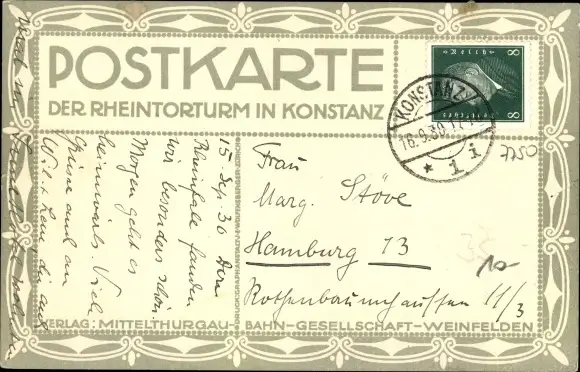 POSTKARTE
DER RHEINTORTURM IN KONSTANZ
8 8
KONSTANZ
16.9.30. 17
* 1 i
7750
15. Sep. 30
Rheinfale fanden
wir besonders schön
Morgen geht es
heimwärts. Viele
Grüsse auch an
Frau
Marg. Stöve
Hamburg 13
Rothenbaumchaussee 11/3
10-
VERLAG: MITTELTHURGAU-BAHN-GESELLSCHAFT-WEINFELDEN